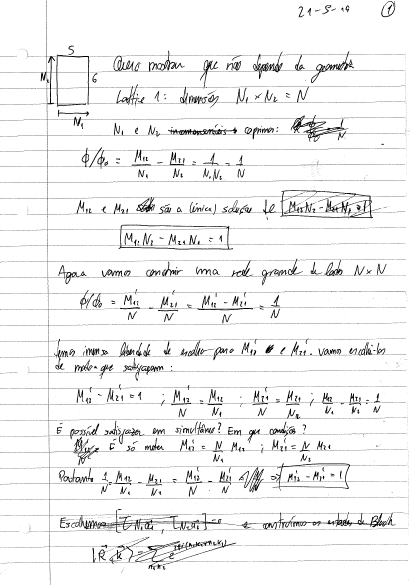 21-9-19 ①
5
6
N₂
N₁
Quero mostrar que não depende da geometria
Lattice 1: dimensões N₁ × N₂ = N
N₁ e N₂ coprimos:
ϕ/ϕ₀ = M₁₂/N₁ - M₂₁/N₂ = 1/(N₁N₂) = 1/N
M₁₂ e M₂₁ são a (única) solução de
M₁₂N₂ - M₂₁N₁ = 1
Agora vamos construir uma rede grande de lados N×N
ϕ/ϕ₀ = M₁₂'/N - M₂₁'/N = (M₁₂' - M₂₁')/N = 1/N
Temos imensa liberdade de escolher para M₁₂' e M₂₁'. Vamos escolhê-los
de modo que satisfaçam:
M₁₂' - M₂₁' = 1 ; M₁₂'/N = M₁₂/N₁ ; M₂₁'/N = M₂₁/N₂ ; M₁₂/N₁ - M₂₁/N₂ = 1/N
É possível satisfazer em simultâneo? Em que condições?
É só meter M₁₂' = N/N₁ M₁₂ ; M₂₁' = N/N₂ M₂₁
Portanto 1/N = M₁₂/N₁ - M₂₁/N₂ = M₁₂'/N - M₂₁'/N ⇒ M₁₂' - M₂₁' = 1
e construímos os estados de Bloch